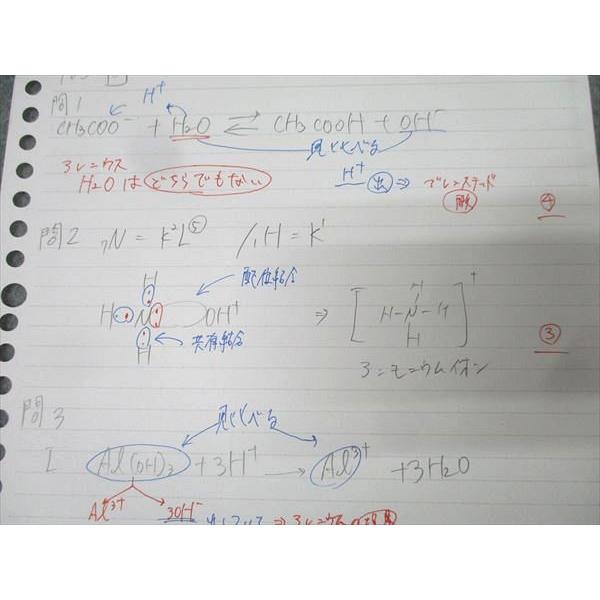 問1
H⁺
CH3COO⁻ + H2O ⇄ CH3COOH + OH⁻
見くらべる
アレニウス
H2Oはどちらでもない
H⁺ 出 ⇒ ブレンステッド
酸
④
問2 ₇N = K²L⑤ / ₁H = K¹
配位結合
H
H N OH⁺ ⇒ [H-N-H]⁺
H
共有結合
③
アンモニウムイオン
問3
見くらべる
I Al(OH)3 + 3H⁺ → Al³⁺ + 3H2O
Al³⁺ 3OH⁻